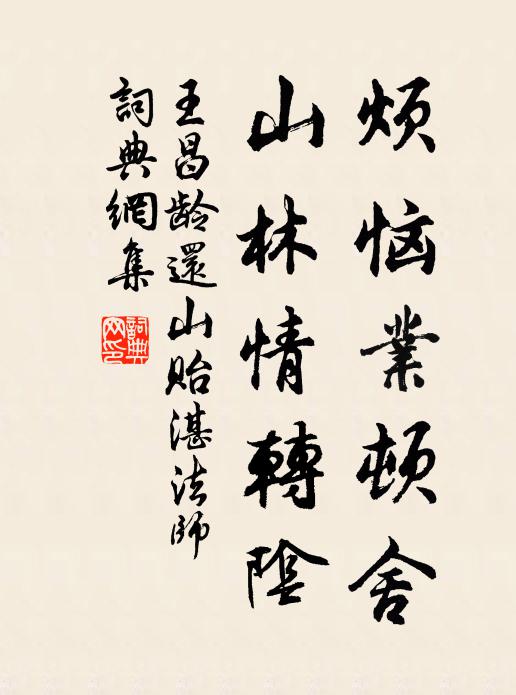 烦恼業顿舍
山林情轉陰
王昌龄還山贻湛法師
詞典網集
詞典
网印